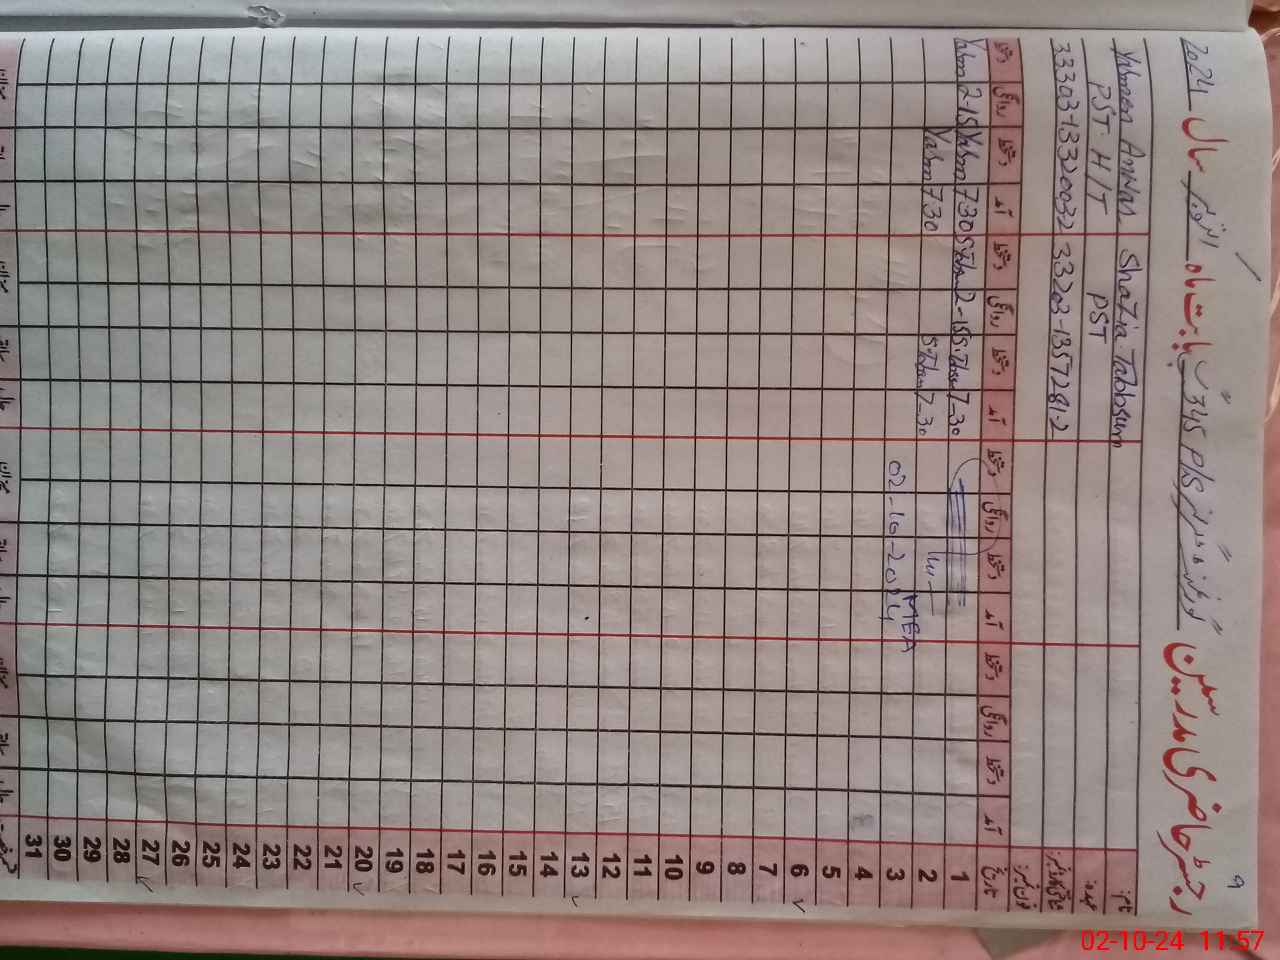 9
رجسٹر حاضری مدرسین گورنمنٹ پرائمری 345 P/S بابت ماہ اکتوبر سال 2024
نام: Yasmeen Anwar Shazia Tabbsum
عہدہ: PST-H/T PST
شناختی کارڈ نمبر: 33303-1332003-2 33203-1357281-2
تاریخ آمد دستخط روانگی دستخط آمد دستخط روانگی دستخط آمد دستخط روانگی دستخط آمد دستخط روانگی دستخط
1 7-30 S.Tabsum 2-15 S.Tabsum 7 30 Yasm 2-15 Yasm
2 7-30 S.Tabsum 7 30 Yasm
MEA
3 02-10-2024
4
5
6
7
8
9
10
11
12
13
14
15
16
17
18
19
20
21
22
23
24
25
26
27
28
29
30
31
02-10-24 11:57